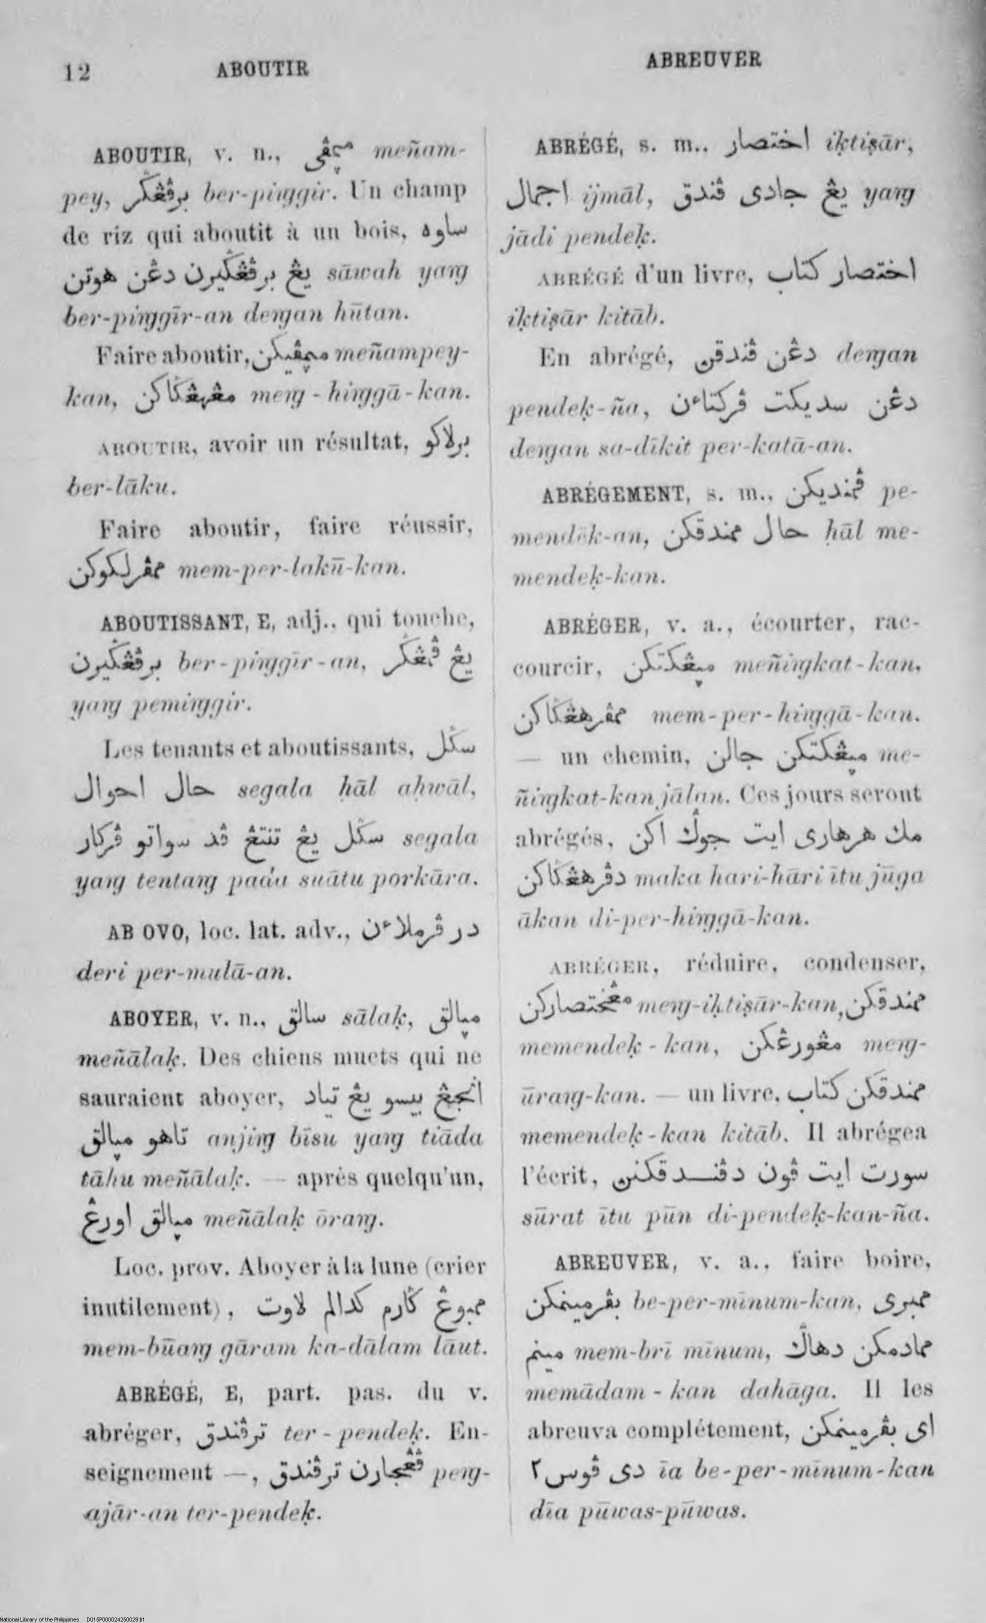 12 ABOUTIR
ABREUVER
ABOUTIR, v. n., ميمڤي meñam-
pey, برڤڠݢر ber-pinggir. Un champ
de riz qui aboutit à un bois, ساوه
يڠ برڤڠݢيرن دڠن هوتن sāwah yang
ber-pinggīr-an dengan hūtan.
Faire aboutir, ميمڤيکن meñampey-
kan, مڠهڠݢاکن meng-hinggā-kan.
ABOUTIR, avoir un résultat, برلاکو
ber-lāku.
Faire aboutir, faire réussir,
ممڤرلکوکن mem-per-lakū-kan.
ABOUTISSANT, E, adj., qui touche,
برڤڠݢيرن ber-pinggīr-an, يڠ ڤمڠݢر
yang peminggir.
Les tenants et aboutissants, سݢل
حال احوال segala ḥāl aḥwāl,
سݢل يڠ تنتڠ ڤد سواتو ڤرکار segala
yang tentang pada suātu porkāra.
AB OVO, loc. lat. adv., در ڤرملاءن
deri per-mulā-an.
ABOYER, v. n., سالق sālaḳ, ميالق
meñālaḳ. Des chiens muets qui ne
sauraient aboyer, انجڠ بيسو يڠ تياد
تاهو ميالق anjing bīsu yang tiāda
tāhu meñālaḳ. — après quelqu'un,
ميالق اورڠ meñālaḳ ōrang.
Loc. prov. Aboyer à la lune (crier
inutilement), ممبوڠ ݢارم کدالم لاوت
mem-būang gāram ka-dālam lāut.
ABRÉGÉ, E, part. pas. du v.
abréger, ترڤندق ter-pendeḳ. En-
seignement —, ڤڠجارن ترڤندق peng-
ajār-an ter-pendeḳ.
ABRÉGÉ, s. m., اختصار iḳtiṣār,
اجمال ijmāl, يڠ جادى ڤندق yang
jādi pendeḳ.
ABRÉGÉ d'un livre, اختصار کتاب
iḳtiṣār kitāb.
En abrégé, دڠن ڤندقن dengan
pendeḳ-ña, دڠن سديکت ڤرکتاءن
dengan sa-dīkit per-katā-an.
ABRÉGEMENT, s. m., ڤمنديکن pe-
mendēk-an, حال ممندقکن ḥāl me-
mendeḳ-kan.
ABRÉGER, v. a., écourter, rac-
courcir, ميڠکتکن meñingkat-kan,
ممڤرهڠݢاکن mem-per-hinggā-kan.
— un chemin, ميڠکتکن جالن me-
ñingkat-kan jālan. Ces jours seront
abrégés, مك هرهارى ايت جوݢ اکن
دڤرهڠݢاکن maka hari-hāri ītu jūga
ākan di-per-hinggā-kan.
ABRÉGER, réduire, condenser,
مڠختصارکن meng-iḳtiṣār-kan, ممندقکن
memendeḳ-kan, مڠورڠکن meng-
ūrang-kan. — un livre, ممندقکن کتاب
memendeḳ-kan kitāb. Il abrégea
l'écrit, سورت ايت ڤون دڤندقکنن
sūrat ītu pūn di-pendeḳ-kan-ña.
ABREUVER, v. a., faire boire,
بڤرمينمکن be-per-mīnum-kan, ممبرى
مينم mem-brī mīnum, ممادمکن دهاݢ
memādam-kan dahāga. Il les
abreuva complétement, اى بڤرمينمکن
دى ڤوس٢ īa be-per-mīnum-kan
dīa pūwas-pūwas.
National Library of the Philippines